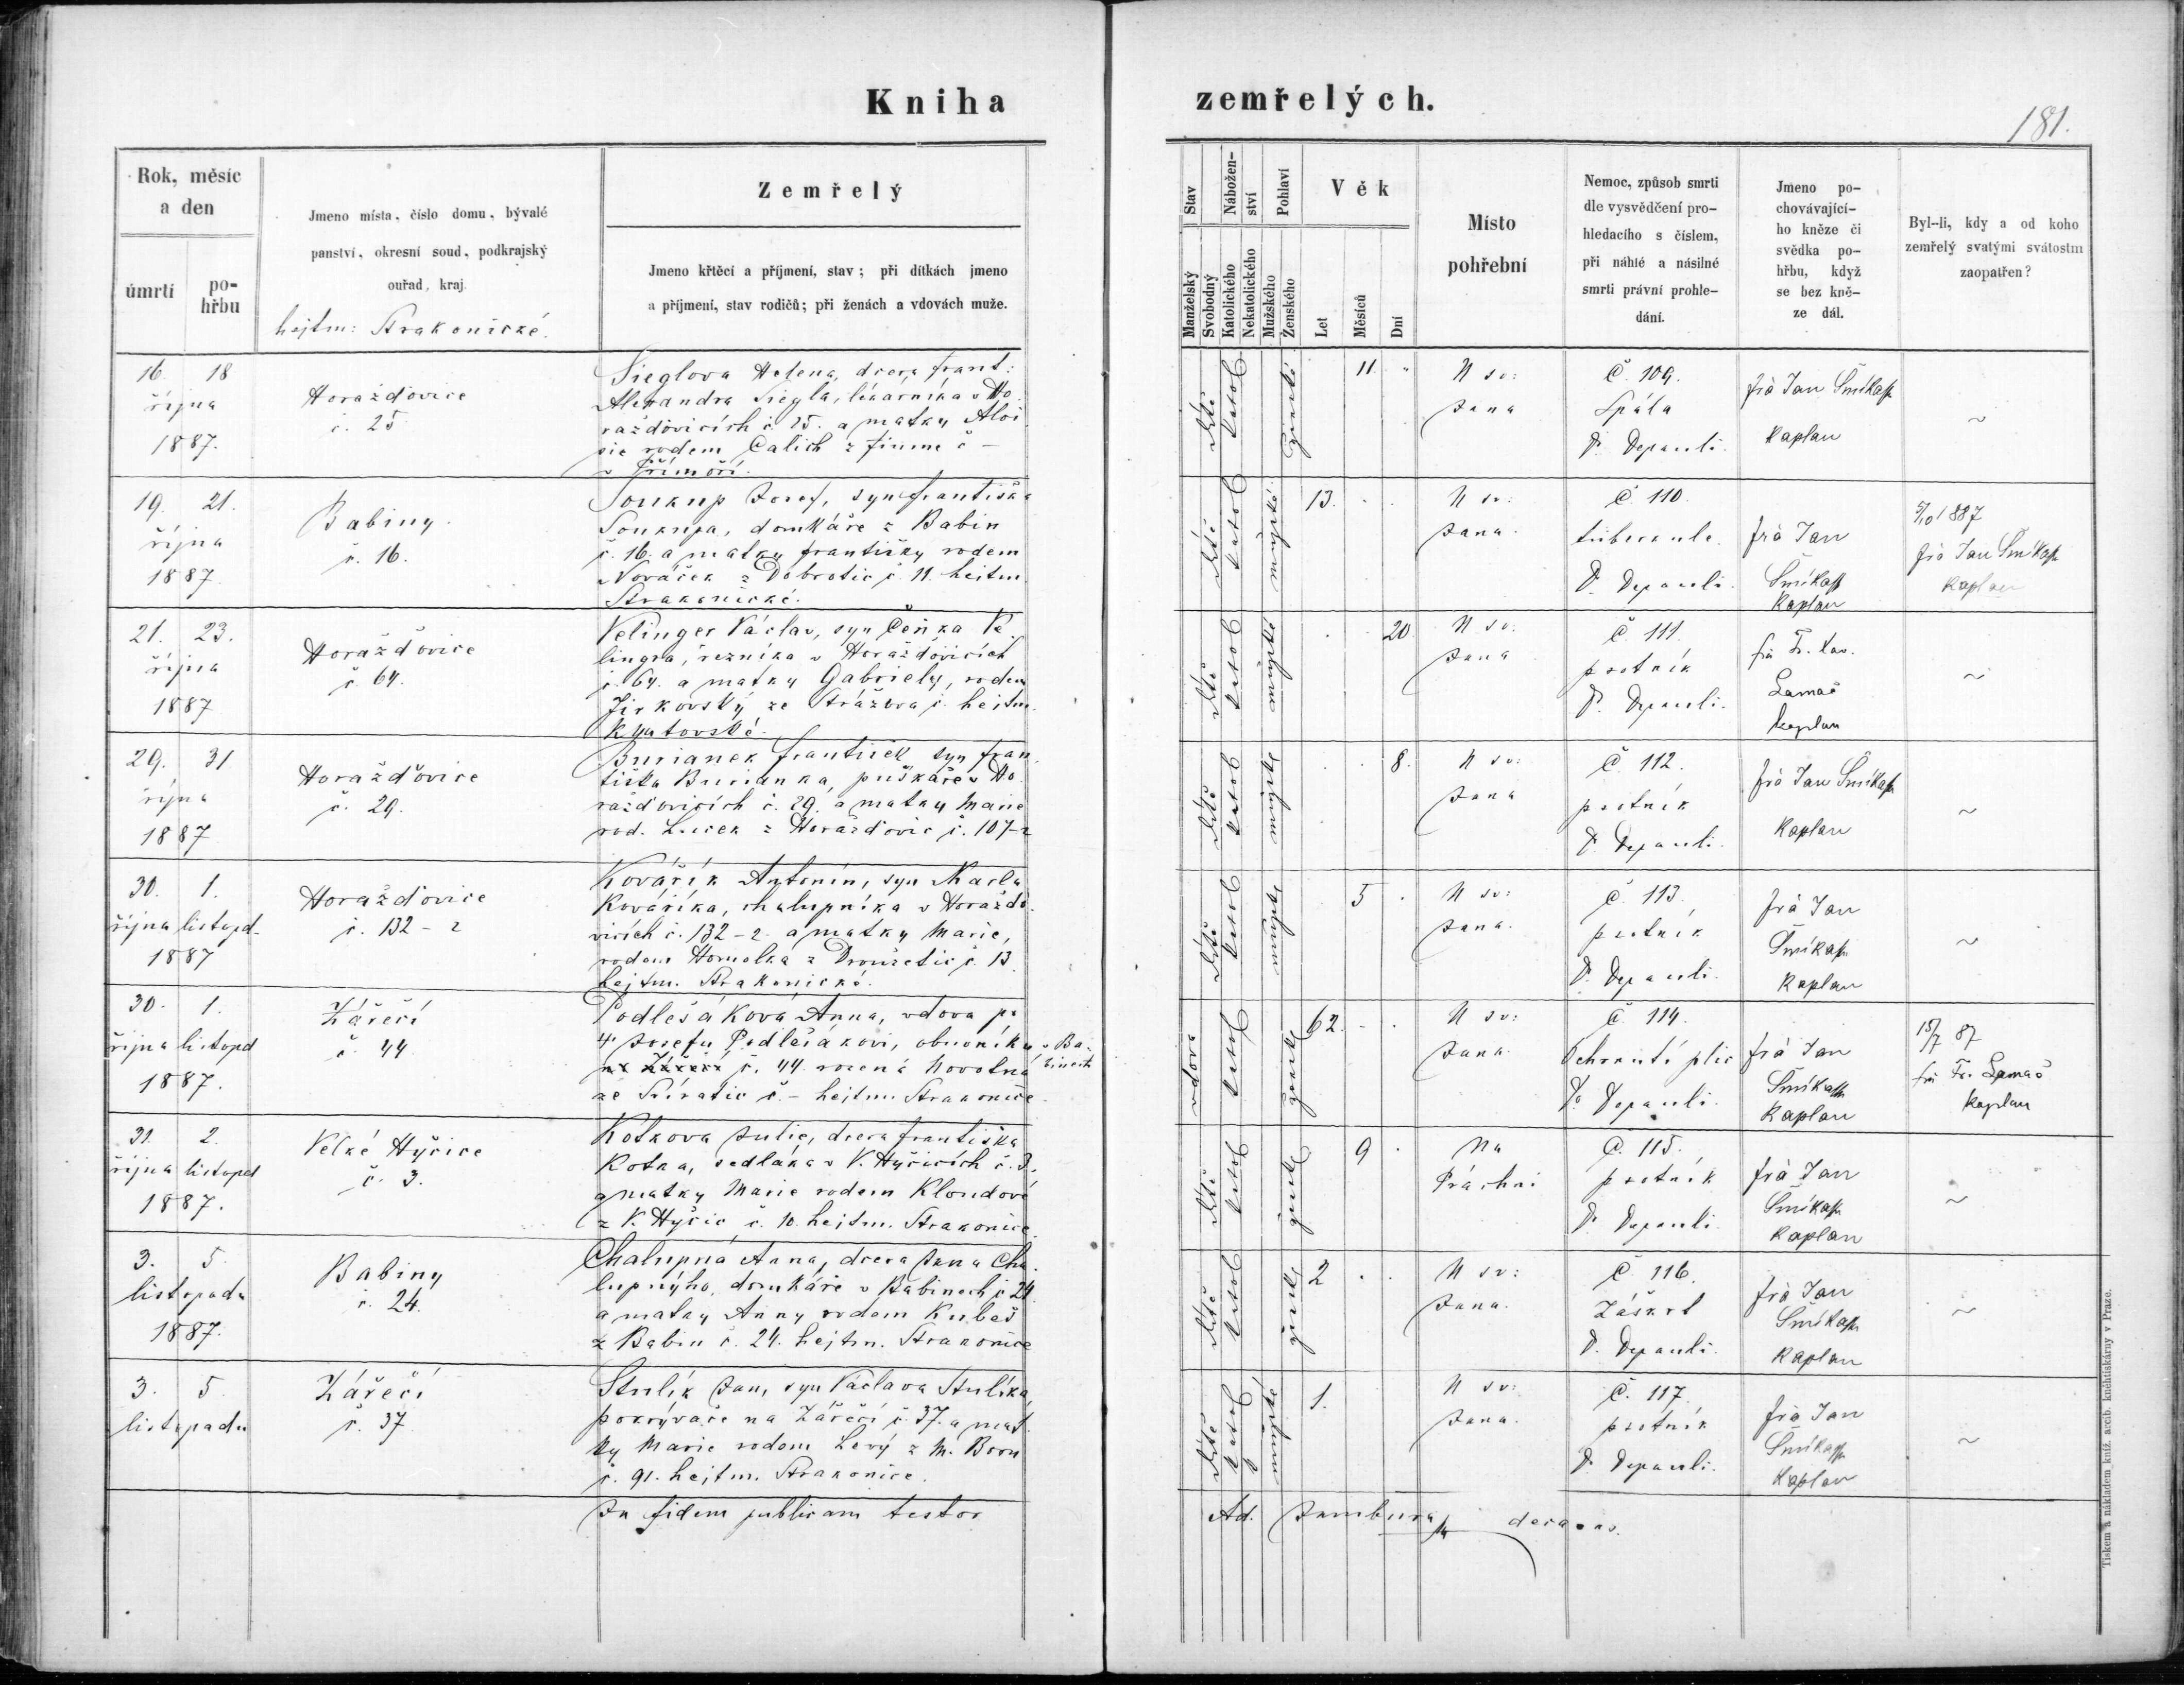 Kniha zemřelých.
181.
Rok, měsíc a den
úmrtí
pohřbu
Jmeno místa, číslo domu, bývalé
panství, okresní soud, podkrajský
ouřad, kraj.
hejtm: Strakonické.
Zemřelý
Jmeno křtěcí a příjmení, stav; při dítkách jmeno
a příjmení, stav rodičů; při ženách a vdovách muže.
Stav
Nábožen-
ství
Pohlaví
Věk
Manželský
Svobodný
Katolického
Nekatolického
Mužského
Ženského
Let
Měsíců
Dní
Místo
pohřební
Nemoc, způsob smrti
dle vysvědčení pro-
hledacího s číslem,
při náhlé a násilné
smrti právní prohle-
dání.
Jmeno po-
chovávající-
ho kněze či
svědka po-
hřbu, když
se bez kně-
ze dál.
Byl-li, kdy a od koho
zemřelý svatými svátostm
zaopatřen?
16. 18
října
1887.
Horažďovice
č. 25
Sieglova Helena, dcera frant:
Alexandra Siegla, lékárníka v Ho
ražďovicích č. 25. a matky Aloi
sie rodem Calich z fiume č –
v Přímoří.
dítě
katol
ženské
11.
U sv:
Jana
Č. 109.
Spála
Dr Depauli.
frà Jan
kaplan
~
19. 21.
října
1887
Babiny.
č. 16.
Soukup Josef, syn františka
Soukupa, domkáře z Babin
č. 16. a matky františky rodem
Nováček z Dobrotic č. 11. hejtm
Strakonické.
dítě
katol
mužské
13.
U sv:
Jana.
Č. 110.
tuberkule.
Dr Depauli.
frà Jan
kaplan
5/10 1887
frà Jan
kaplan
21. 23.
října
1887
Horažďovice
č. 64.
Velinger Václav, syn Čeňka Ve
lingra, řezníka v Horažďovicích
č. 64. a matky Gabriely, rodem
Jirkovský ze Strážova č. hejtm.
Klatovské.
dítě
katol
mužské
20
U sv:
Jana
Č. 111.
psotník
Dr. Depauli.
frà Fr. Xav.
Lamač
kaplan
~
29. 31
října
1887
Horažďovice
č. 29.
Burianek františek syn fran
tiška Burianka, puškaře v Ho
ražďovicích č. 29. a matky Marie
rod. Lucek z Horažďovic č. 107-2
dítě
katol
mužské
8.
U sv:
Jana
Č. 112.
psotník
Dr Depauli.
frà Jan
kaplan
~
30. 1.
října listopd.
1887
Horažďovice
č. 132 – 2
Kovářík Antonín, syn Karla
Kováříka, chalupníka v Horažďo
vicích č. 132 – 2. a matky Marie,
rodem Homolka z Droužetic č. 13
hejtm. Strakonické.
dítě
katol
mužské
5
U sv:
Jana.
Č. 113.
psotník
Dr Depauli.
frà Jan
kaplan
~
30. 1.
října listopd
1887.
Zářečí
č. 44
Podlešákova Anna, vdova po
† Josefu Podlešákovi, obuvníku v Ba-
na Zářečí č. 44. rozená Novotná binech
ze Svíratic č. – hejtm. Strakonice.
vdova
katol
ženské
62.
U sv:
Jana
Č. 114.
Ochrnutí plic
Dr Depauli.
frà Jan
kaplan
15/7 87
frà Fr. Lamač
kaplan
31. 2.
října listopd
1887.
Velké Hyčice
č. 3.
Kotkova Julie, dcera františka
Kotka, sedláka v V. Hyčicích č. 3.
a matky Marie rodem Kloudové
z V. Hyčic č. 10. hejtm. Strakonice
dítě
katol
ženské
9
Na
Práchni
Č. 115.
psotník
Dr Depauli.
frà Jan
kaplan
~
3. 5.
listopadu
1887.
Babiny
č. 24.
Chalupná Anna, dcera Jana Cha
lupnýho, domkáře v Babinech č 24
a matky Anny rodem Kubeš
z Babin č. 24. hejtm. Strakonice
dítě
katol
ženské
2
U sv:
Jana.
Č. 116.
Záškrt
Dr. Depauli.
frà Jan
kaplan
~
3. 5
listopadu
Zářečí
č. 37
Stulík Jan, syn Václava Stulíka
pokrývače na Zářečí č. 37. a mat
ky Marie rodem Levý z M. Boru
č. 91. hejtm. Strakonice.
dítě
katol
mužské
1.
U sv:
Jana.
Č. 117.
psotník
Dr Depauli.
frà Jan
kaplan
~
In fidem publicam testor
Ad. Jambura decanus.
Tiskem a nákladem kníž. arcib. kněhtiskárny v Praze.